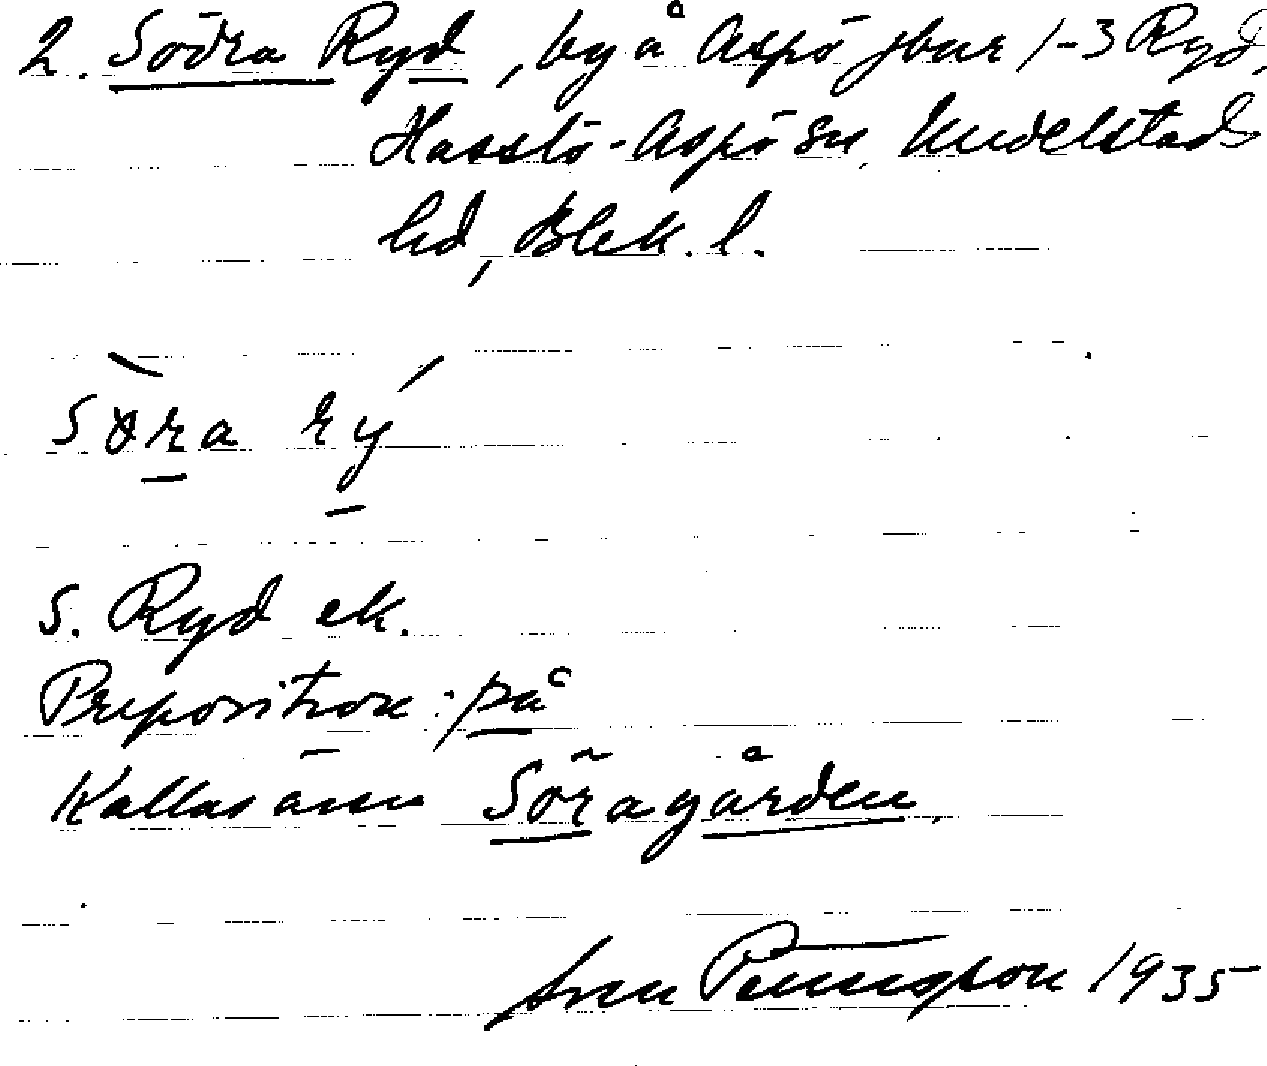 2. Södra Ryd, by å Aspö jbar 1-3 Ryd,
Hasslö-Aspö sn, Medelstads
hd, Blek. l.
Söra rý
S. Ryd ek.
Preposition: på
Kallas även Söragården.
Sven 1935